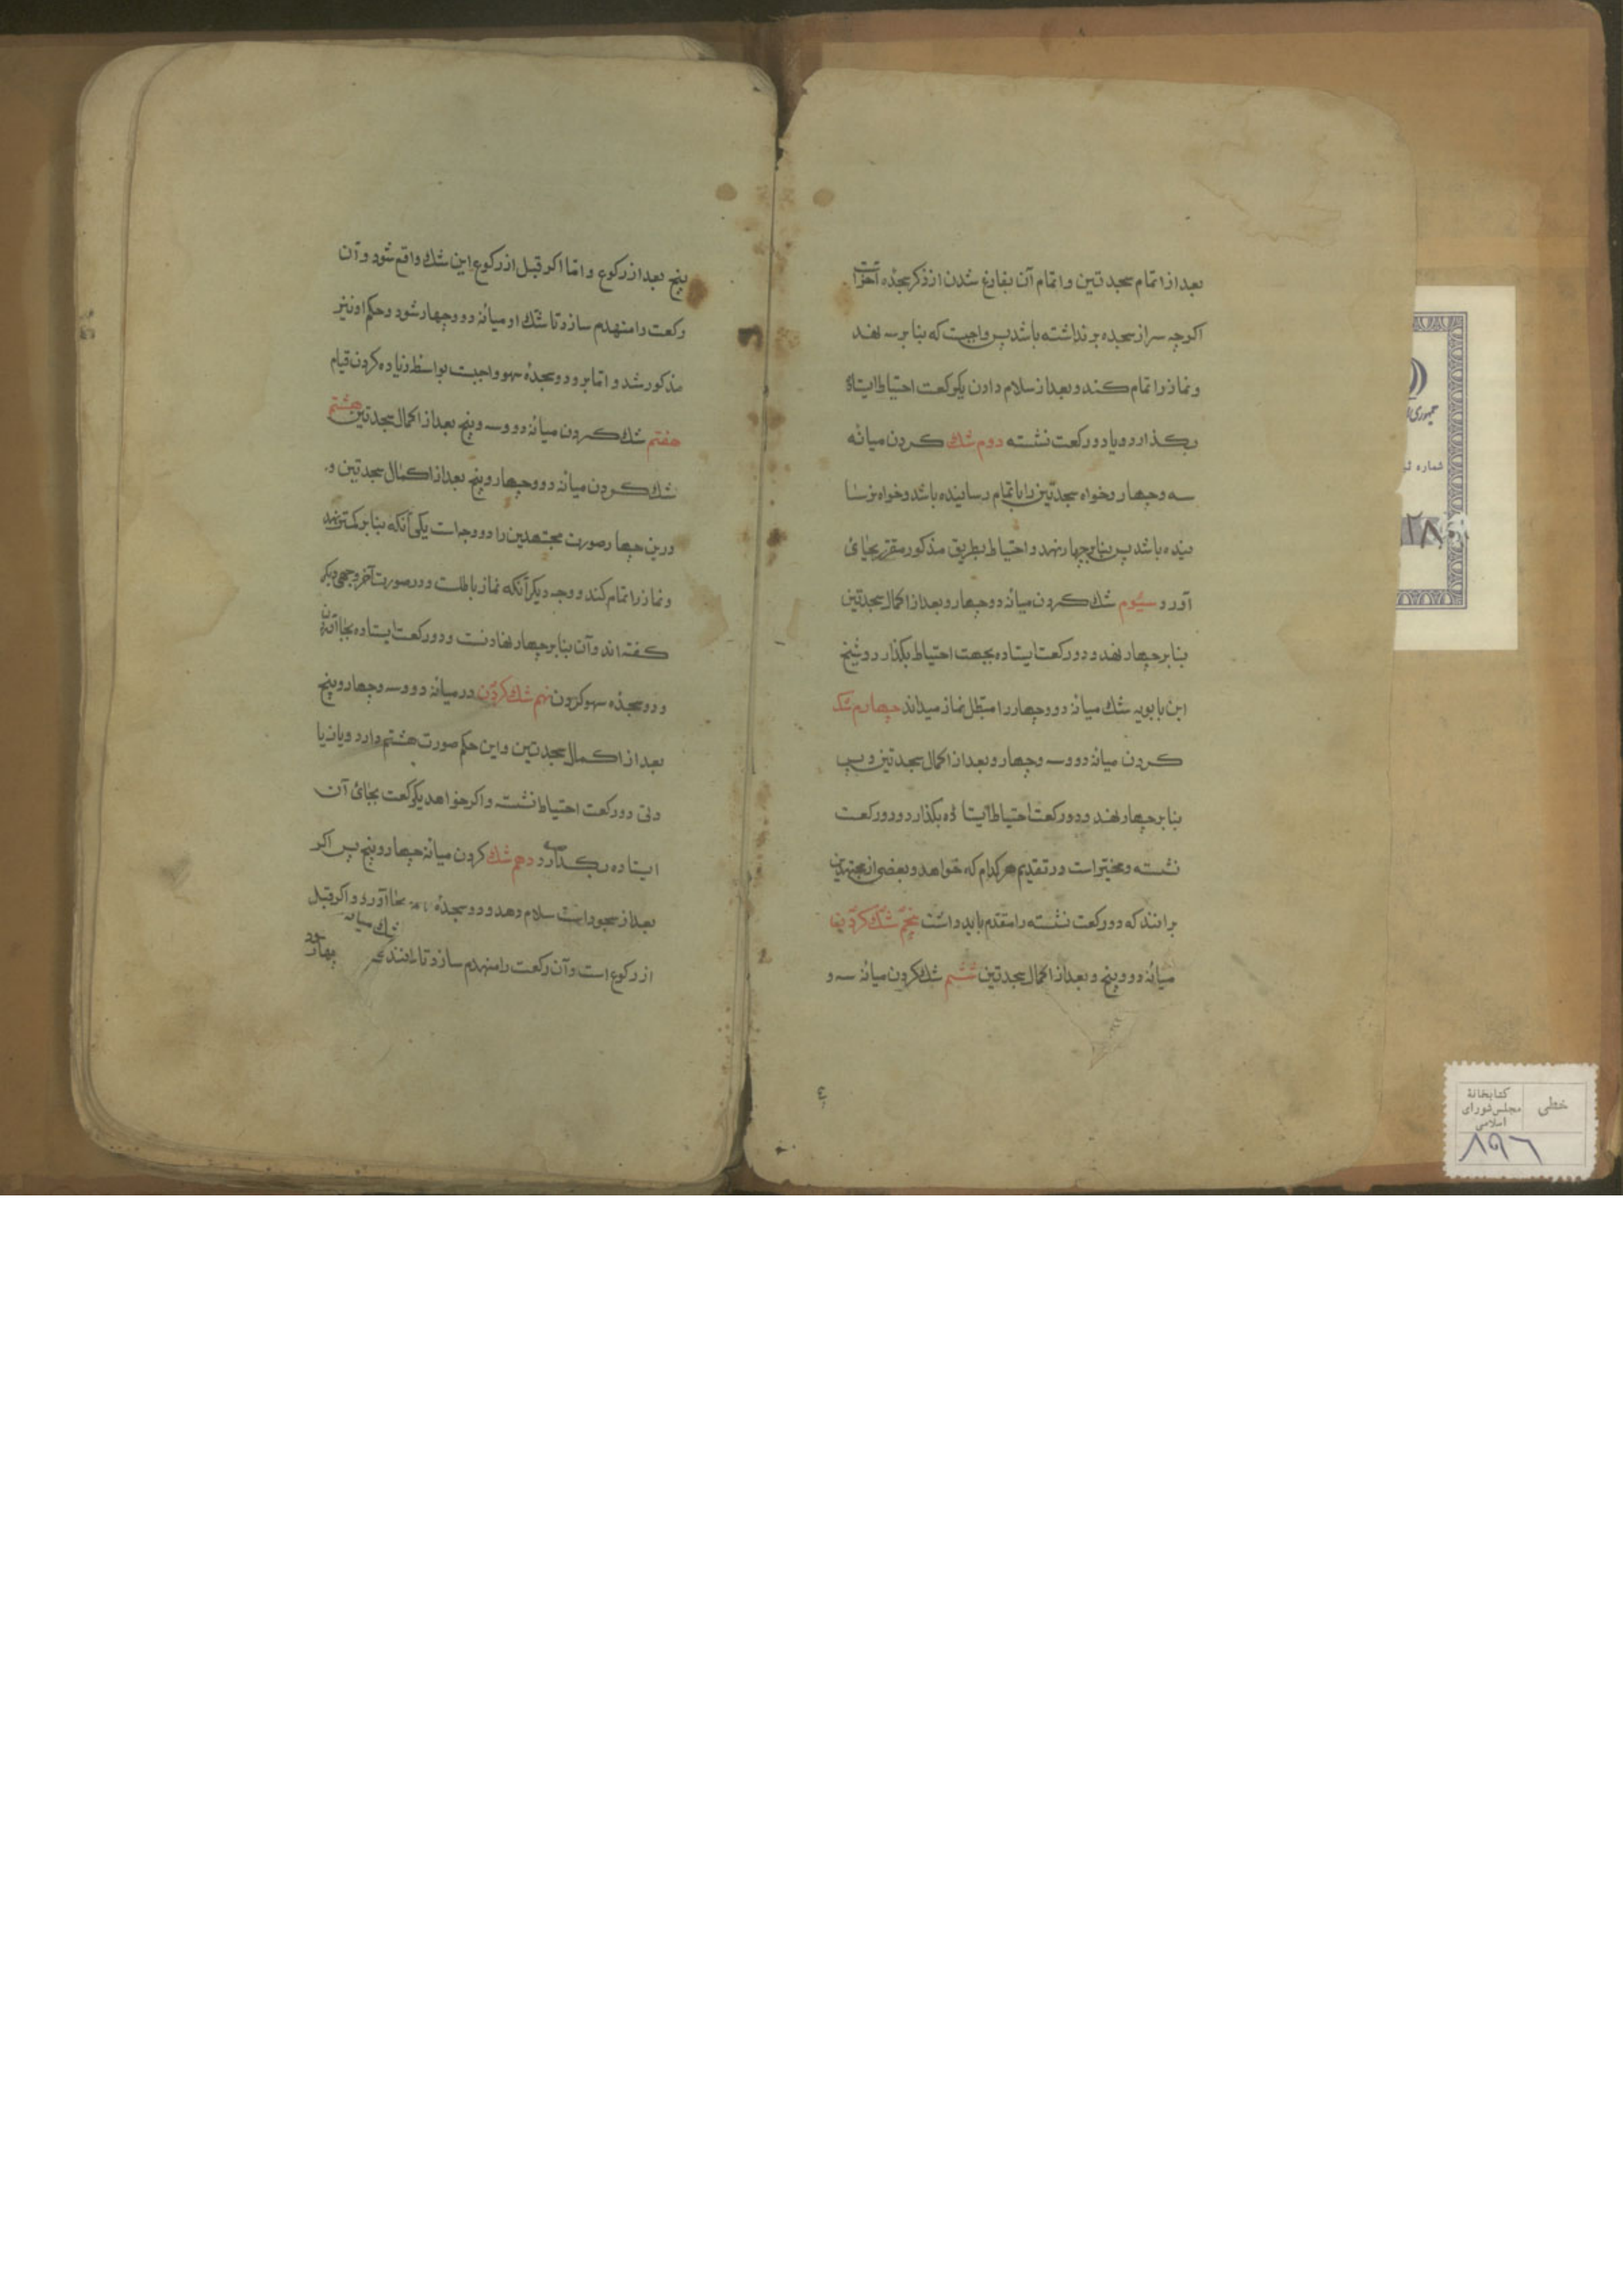 بعد از اتمام سجدتین و اتمام آن بفارغ شدن از ذکر سجدهٔ آخر است
اکرچه سر از سجده برنداشته باشد پس واجبست که بنا بر سه نهد
و نماز را تمام کند و بعد از سلام دادن یکرکعت احتیاط ایستاده
بکذارد و یا دو رکعت نشسته دوم شک کردن میانه
سه و چهار و خواه سجدتین را باتمام رسانیده باشد و خواه نرسا
نیده باشد پس بنا بر چهار نهد و احتیاط بطریق مذکور مقرر بجای
آورد سیوم شک کردن میانه دو چهار و بعد از اکمال سجدتین
بنا بر چهار نهد و دو رکعت ایستاده بجهت احتیاط بکذارد و شیخ
ابن بابویه شک میانه دو و چهار را مبطل نماز میداند چهارم شک
کردن میانه دو و سه و چهار و بعد از اکمال سجدتین و پس
بنا بر چهار نهد و دو رکعت احتیاط ایستا ده بکذارد و دو رکعت
نشسته و مخیر است در تقدیم هر کدام که خواهد و بعضی از مجتهدین
برانند که دو رکعت نشسته را مقدم باید داشت پنجم شک کردن
میانه دو و پنج و بعد از اکمال سجدتین ششم شک کردن میانه سه و
٤
پنج بعد از رکوع و اما اکر قبل از رکوع این شک واقع شود و آن
رکعت را منهدم سازد تا شک او میانه دو و چهار شود و حکم او نیز
مذکور شد و اما برو دو سجدهٔ سهو واجبست بواسطهٔ زیاده کردن قیام
هفتم شک کردن میانه دو و سه و پنج بعد از اکمال سجدتین هشتم
شک کردن میانه دو و چهار و پنج بعد از اکمال سجدتین و
درین چهار صورت مجتهدین را دو وجه است یکی آنکه بنا بر کمتر نهد
و نماز را تمام کند و وجه دیکر آنکه نماز باطلست و در صورت آخر وجهی دیکر
کفته اند و آن بنا بر چهار نهادنست و دو رکعت ایستاده بجا آوردن
و دو سجدهٔ سهو کردن نهم شک کردن در میانه دو و سه و چهار و پنج
بعد از اکمال سجدتین و این حکم صورت هشتم دارد و یا زیا
دتی دو رکعت احتیاط نشسته و اکر خواهد یکرکعت بجای آن
ایستاده بکذارد دهم شک کردن میانه چهار و پنج پس اکر
بعد از سجود است سلام دهد و دو سجدهٔ بجا آورد و اکر قبل
شک میانه
از رکوع است و آن رکعت را منهدم سازد تا مانند چهار
جمهوری
شماره
۲۸
خطی
کتابخانهٔ
مجلس شورای
اسلامی
۸۹۶